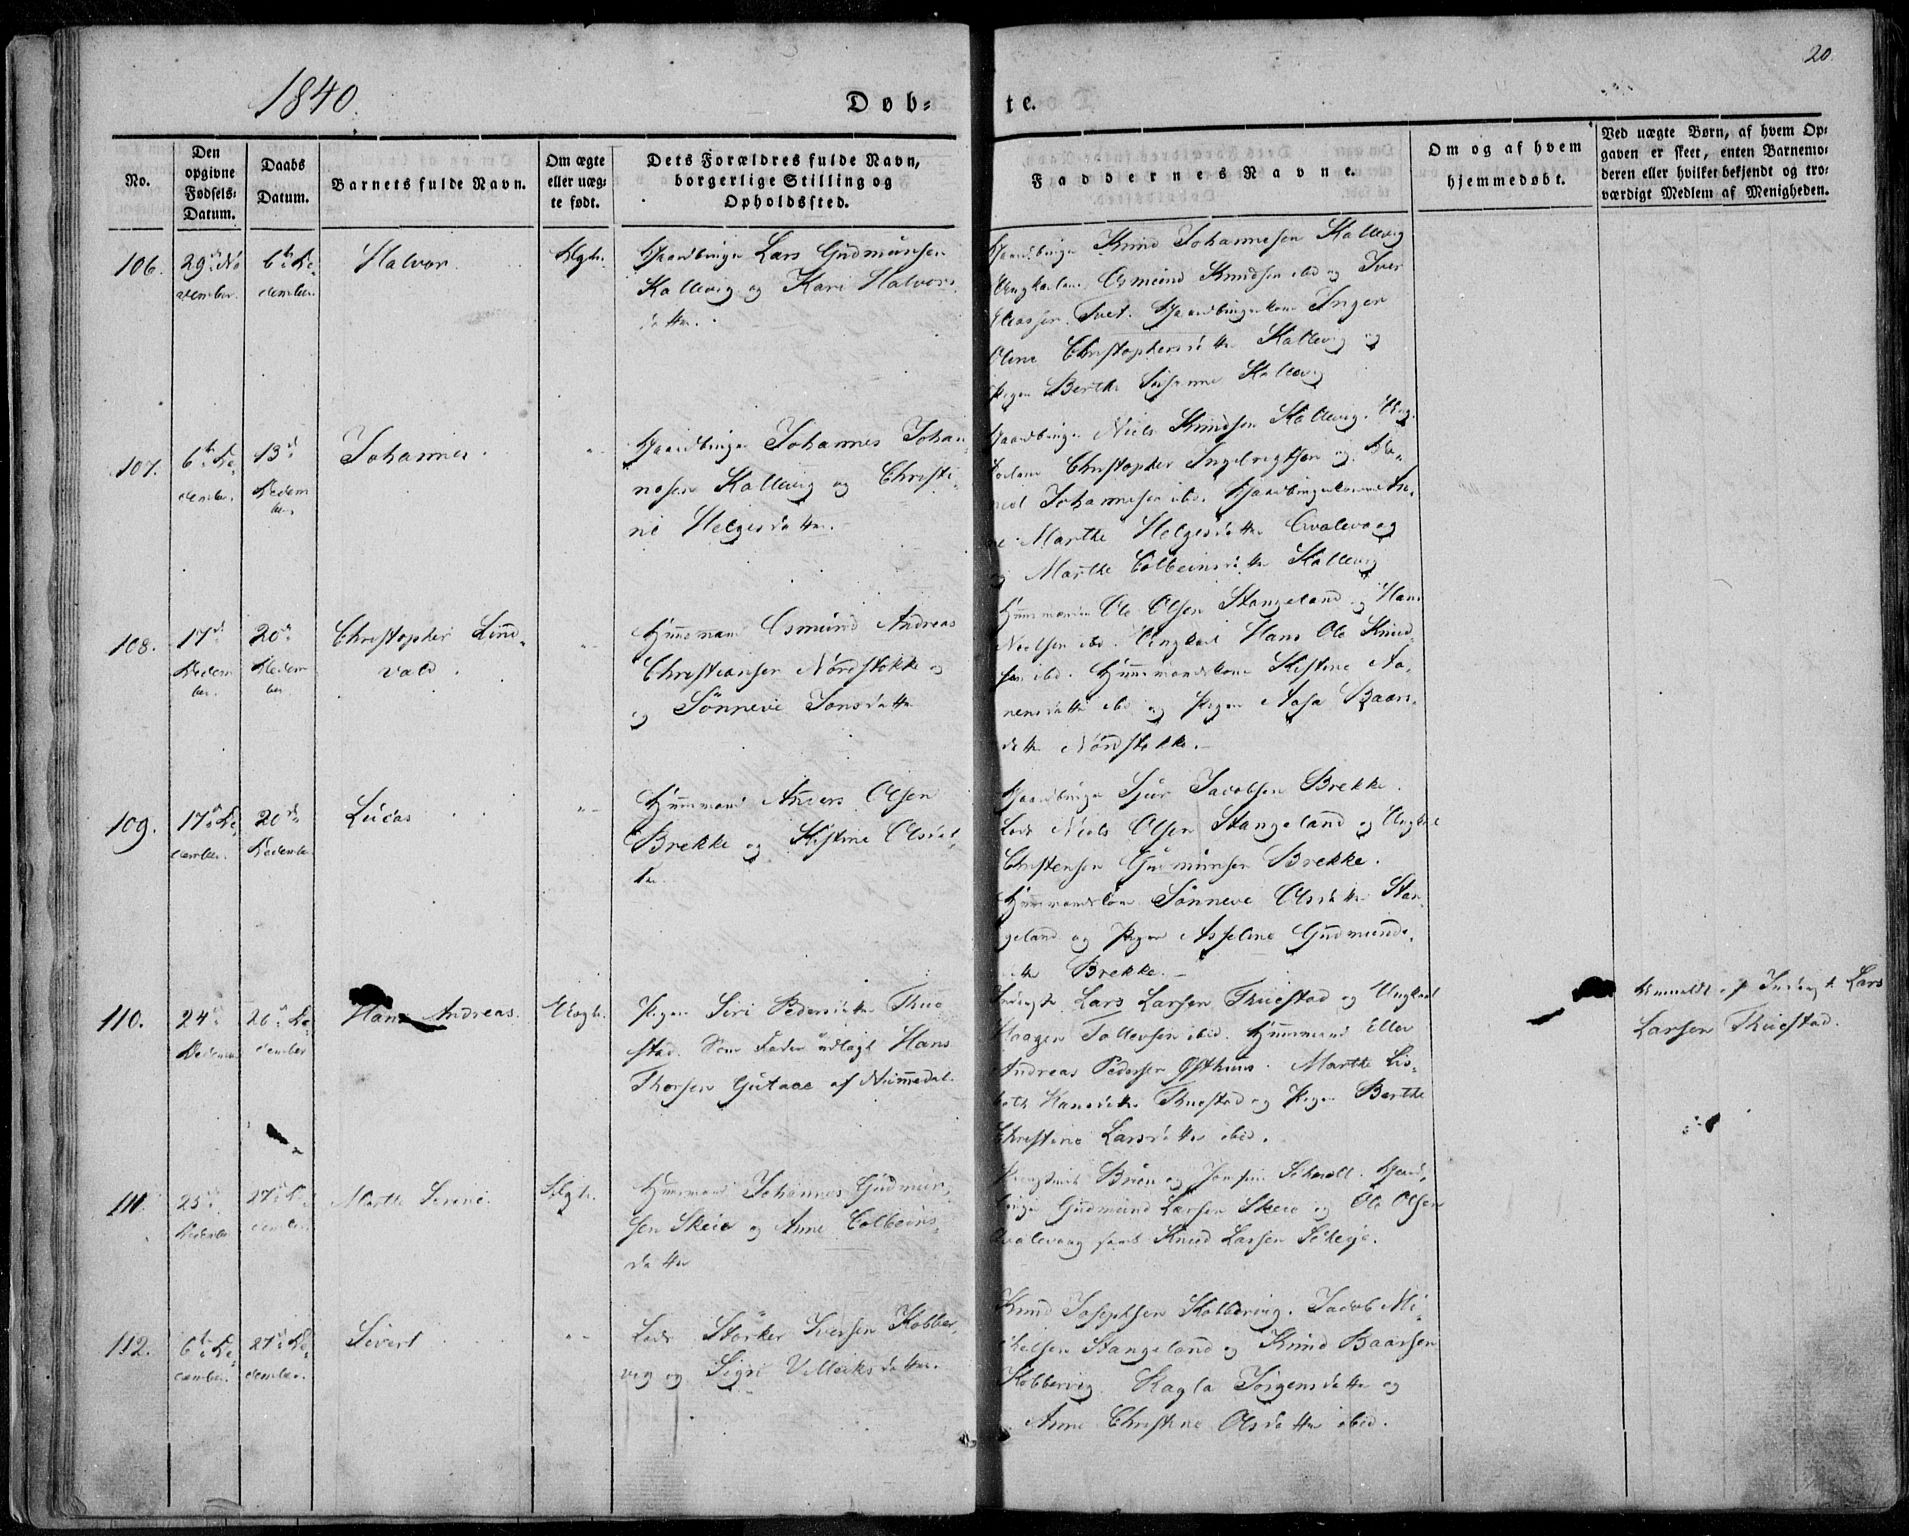 1840.
Døb=
te.
20
No.
Den
opgivne
Fødsels-
Datum.
Daabs
Datum.
Barnets fulde Navn.
Om ægte
eller uæg-
te født.
Dets Forældres fulde Navn,
borgerlige Stilling og
Opholdssted.
Faddernes Navne.
Om og af hvem
hjemmedøbt.
Ved uægte Børn, af hvem Op-
gaven er skeet, enten Barnemo-
deren eller hvilket bekjendt og tro-
værdigt Medlem af Menigheden.
106.
29de No
vember.
6te De-
cember.
Halvor
Ægte.
Gaardbruger Lars Gudmunsen
Kallevig og Kari Halvors
datter.
Gaardbruger Knud Johannesen Kallevig
Ungkarlene Osmund Knudsen ibd og Iver
Eliassen Tvet. Gaardbrugerkone Inger
Oline Christophersdatter Kallevig og
Pigen Berthe Susanne Kallevig
107.
6te De-
cember.
13de
Decem
ber
Johannes.
Gaardbruger Johannes Johan-
nesen Kallevig og Christi-
ne Helgesdatter.
Gaardbruger Niels Knudsen Kallevig. Ung-
karlene Christopher Ingebrigtsen og
Johannesen ibd. Gaardbrugerkonerne
Marthe Helgesdatter Qvalevaag
og Marthe Colbeinsdatter Kallevig
108.
17de
Decem
ber.
20de
Decem
ber
Christopher Lind-
vald.
Huusmand Osmund Andreas
Christiansen Nordstokke og
og Sønneve Jonsdatter
Huusmænd Ole Olsen Stangeland og Hans
Neelsen ibd. Ungkarl Hans Ole Knud-
sen ibd. Huusmandskone Kistine Aa-
nensdatter ibd og Pigen Aasa Baars-
datter Nordstokke.
109.
17de De-
cember.
20de
December
Lucas
Huusmand Anders Olsen
Brekke og Kistine Olsdat-
ter.
Gaardbruger Sjur Jacobsen Brekke.
Lods Niels Olsen Stangeland og Ungkarl
Christensen Gudmunsen Brekke.
Huusmandskone Sønneve Olsdatter Stan-
geland og Pigen Asseline Gudmunds-
datter Brekke.
110.
24de
December
26de De-
cember
Hans Andreas.
Uægte.
Pigen Siri Pedersdatter Thue
stad. Som Fader udlagt Hans
Thorsen Gutaae af Nummedal.
Lars Larsen Thuestad og Ungkarl
Haagen Tollevsen ibid. Huusmand Eller
Andreas Pedersen Østhuus. Marthe Lis-
beth Hansdatter Thuestad og Pigen Berthe
Christine Larsdatter ibid.
Anmeldt af Lars
Larsen Thuestad.
111.
25de
December
27de De-
cember.
Marthe Serine.
Ægte.
Huusmand Johannes Gudmun-
sen Skeie og Anne Colbeins-
datter
Gudmund Larsen Skeie og Ole Olsen
Qvalevaag samt Knud Larsen
112.
6te De-
cember.
27de De-
cember.
Sivert
Lods Størker Iversen Kobber-
vig og Sigri Villeiksdatter.
Knud Josephsen Kobbervig. Jacob Mi-
chelsen Stangeland og Knud Baarsen
Kobbervig. Ragla Jørgensdatter og
Anne Christine Olsdatter ibid.